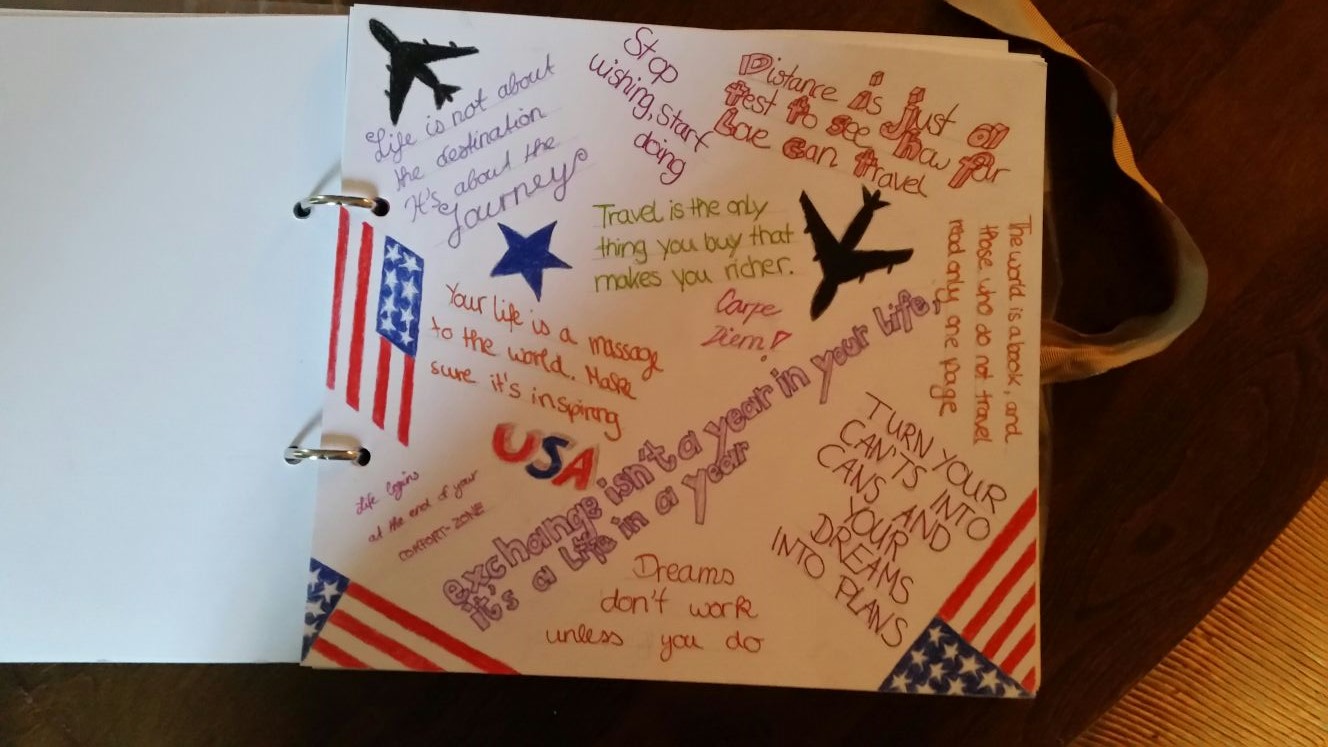 Life is not about
the destination
It's about the
Journey
Stop
wishing, start
doing
Distance is just a
test to see how far
Love can travel
Travel is the only
thing you buy that
makes you richer.
Carpe
Diem!
The world is a book, and
those who do not travel
read only one page
Your life is a massage
to the world. Make
sure it's inspiring
USA
Life begins
at the end of your
COMFORT-ZONE
exchange isn't a year in your life,
it's a life in a year
TURN YOUR
CAN'TS INTO
CANS AND
YOUR
DREAMS
INTO PLANS
Dreams
don't work
unless you do